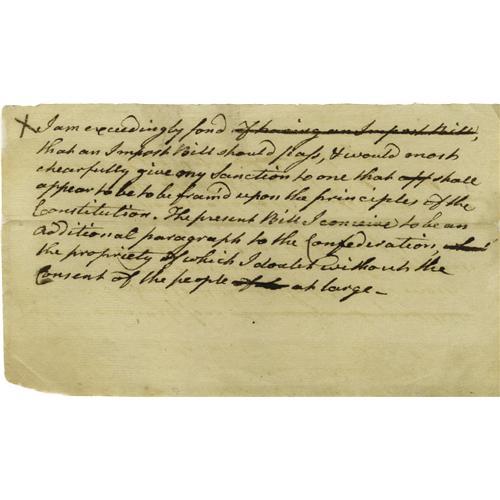 X I am exceedingly fond of having an Impost Bill,
that an Impost Bill should pass, & would most
chearfully give my Sanction to one that app shall
appear to be to be fram'd upon the principles of the
Constitution. The present Bill I conceive to be an
additional paragraph to the Confederation,
the propriety of which I doubt without the
Consent of the people at large –